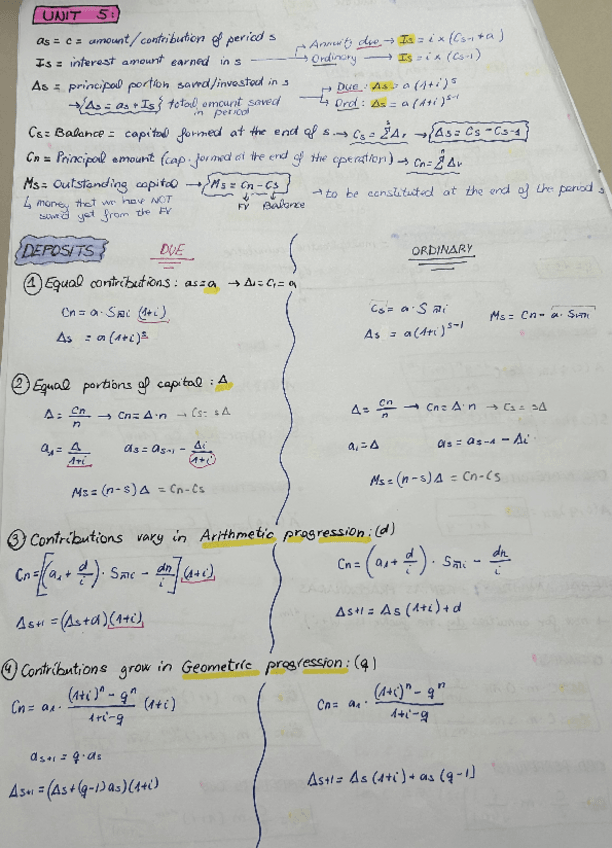 UNIT 5:
as = c = amount/contribution of period s
Is = interest amount earned in s → Annuity due → Is = i × (Cs-1 + a)
→ Ordinary → Is = i × (Cs-1)
Δs = principal portion saved/invested in s → Due: Δs = a (1+i)^s
→ {Δs = as + Is} total amount saved in period → Ord: Δs = a (1+i)^s-1
Cs = Balance = capital formed at the end of s. → Cs = Σ Δr → {Δs = Cs - Cs-1}
Cn = Principal amount (cap. formed at the end of the operation) → Cn = Σ Δr
Ms = Outstanding capital → {Ms = Cn - Cs} → to be constituted at the end of the period s
↳ money that we have NOT saved yet from the FV
FV Balance
DEPOSITS DUE ORDINARY
① Equal contributions: as = a → Δ1 = C1 = a
Cn = a · Sn̅i (1+i) Cs = a · Sn̅i Ms = Cn - a · Sn̅i
Δs = a (1+i)^s Δs = a (1+i)^s-1
② Equal portions of capital: Δ
Δ = Cn/n → Cn = Δ · n → Cs = sΔ Δ = Cn/n → Cn = Δ · n → Cs = sΔ
a1 = Δ/(1+i) as = as-1 - Δi/(1+i) a1 = Δ as = as-1 - Δi
Ms = (n-s) Δ = Cn - Cs Ms = (n-s) Δ = Cn - Cs
③ Contributions vary in Arithmetic progression: (d)
Cn = [(a1 + d/i) · Sn̅i - dn/i] (1+i) Cn = (a1 + d/i) · Sn̅i - dn/i
Δs+1 = (Δs + d) (1+i) Δs+1 = Δs (1+i) + d
④ Contributions grow in Geometric progression: (q)
Cn = a1 · ((1+i)^n - q^n)/(1+i-q) (1+i) Cn = a1 · ((1+i)^n - q^n)/(1+i-q)
as+1 = q · as
Δs+1 = (Δs + (q-1) as) (1+i) Δs+1 = Δs (1+i) + as (q-1)